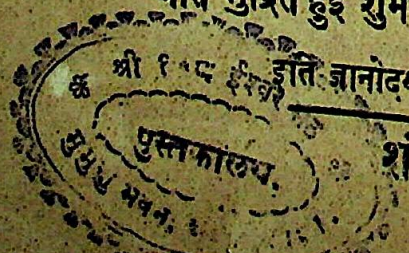 हुई शुभ
इति ज्ञानोद
श्री १०८ ईश्वर
पुस्तकालय.
मुमुक्षु भवन,